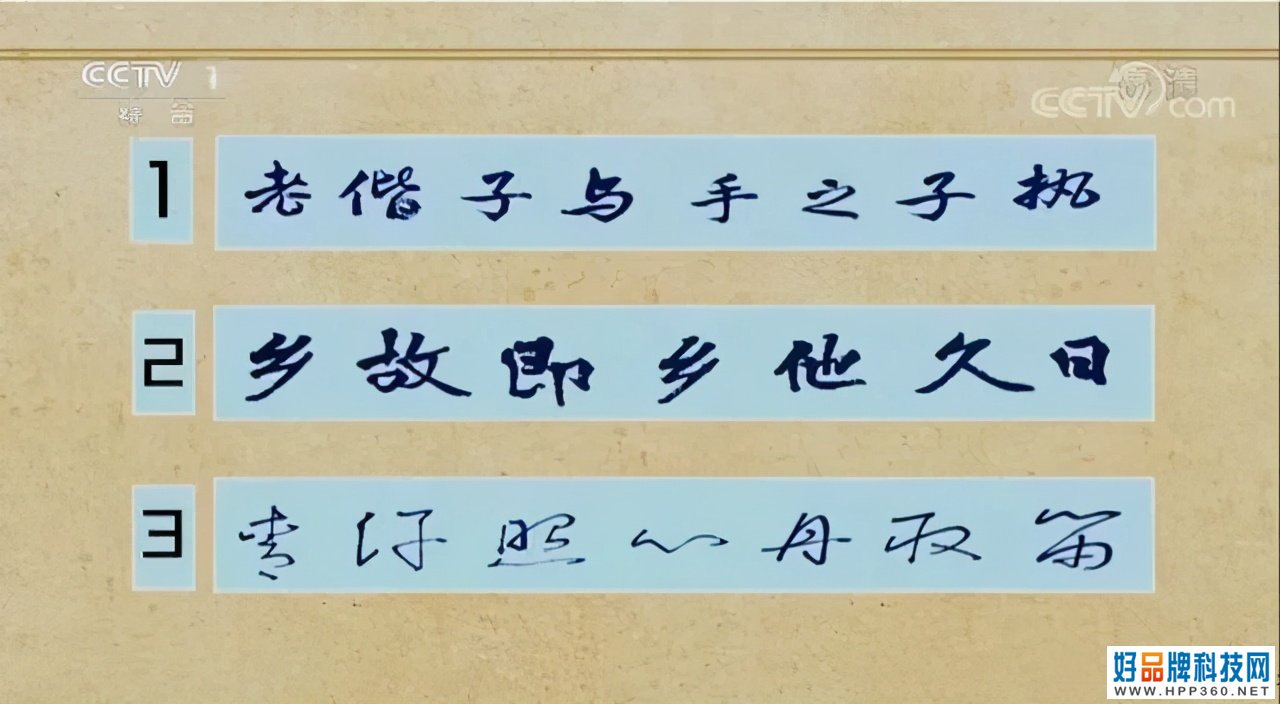 CCTV 1
综合
高清
CCTV com
1 老偕子与手之子执
2 乡故即乡他久日
3 青汗照心丹取留
好品牌科技网
WWW.HPP360.NET